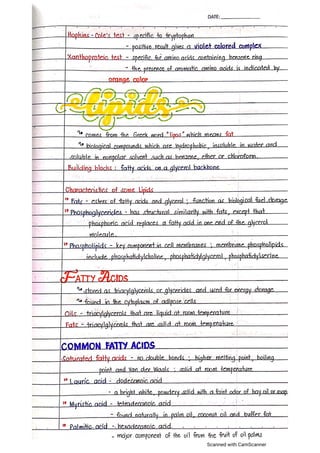 DATE:
Hopkins-Cole's test - specific to tryptophan
- positive result gives a violet colored complex
Xanthoproteic test - specific for amino acids containing benzene ring
- the presence of aromatic amino acids is indicated by
orange color
lipids
comes from the Greek word "lipos" which means fat
biological compounds which are hydrophobic, insoluble in water and
soluble in nonpolar solvent such as benzene, ether or chloroform.
Building blocks: fatty acids on a glycerol backbone
Characteristics of some Lipids
Fats - esters of fatty acids and glycerol; function as biological fuel storage
Phosphoglycerides - has structural similarity with fats, except that
phosphoric acid replaces a fatty acid in one end of the glycerol
molecule.
Phospholipids - key component in cell membranes; membrane phospholipids
include phosphatidylcholine, phosphatidylglycerol, phosphatidylserine
FATTY ACIDS
stored as triacylglycerols or glycerides and used for energy storage
found in the cytoplasm of adipose cells
Oils - triacylglycerols that are liquid at room temperature
Fats - triacylglycerols that are solid at room temperature
COMMON FATTY ACIDS
Saturated fatty acids - no double bonds; higher melting point, boiling
point and Van der Waals; solid at room temperature
Lauric acid - dodecanoic acid
- a bright white, powdery solid with a faint odor of bay oil or soap
Myristic acid - tetradecanoic acid
- found naturally in palm oil, coconut oil and butter fat
Palmitic acid - hexadecanoic acid
- major component of the oil from the fruit of oil palms
Scanned with CamScanner